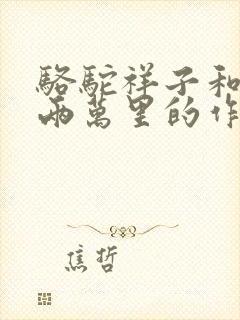 駱駝祥子和
兩萬里的作
焦哲